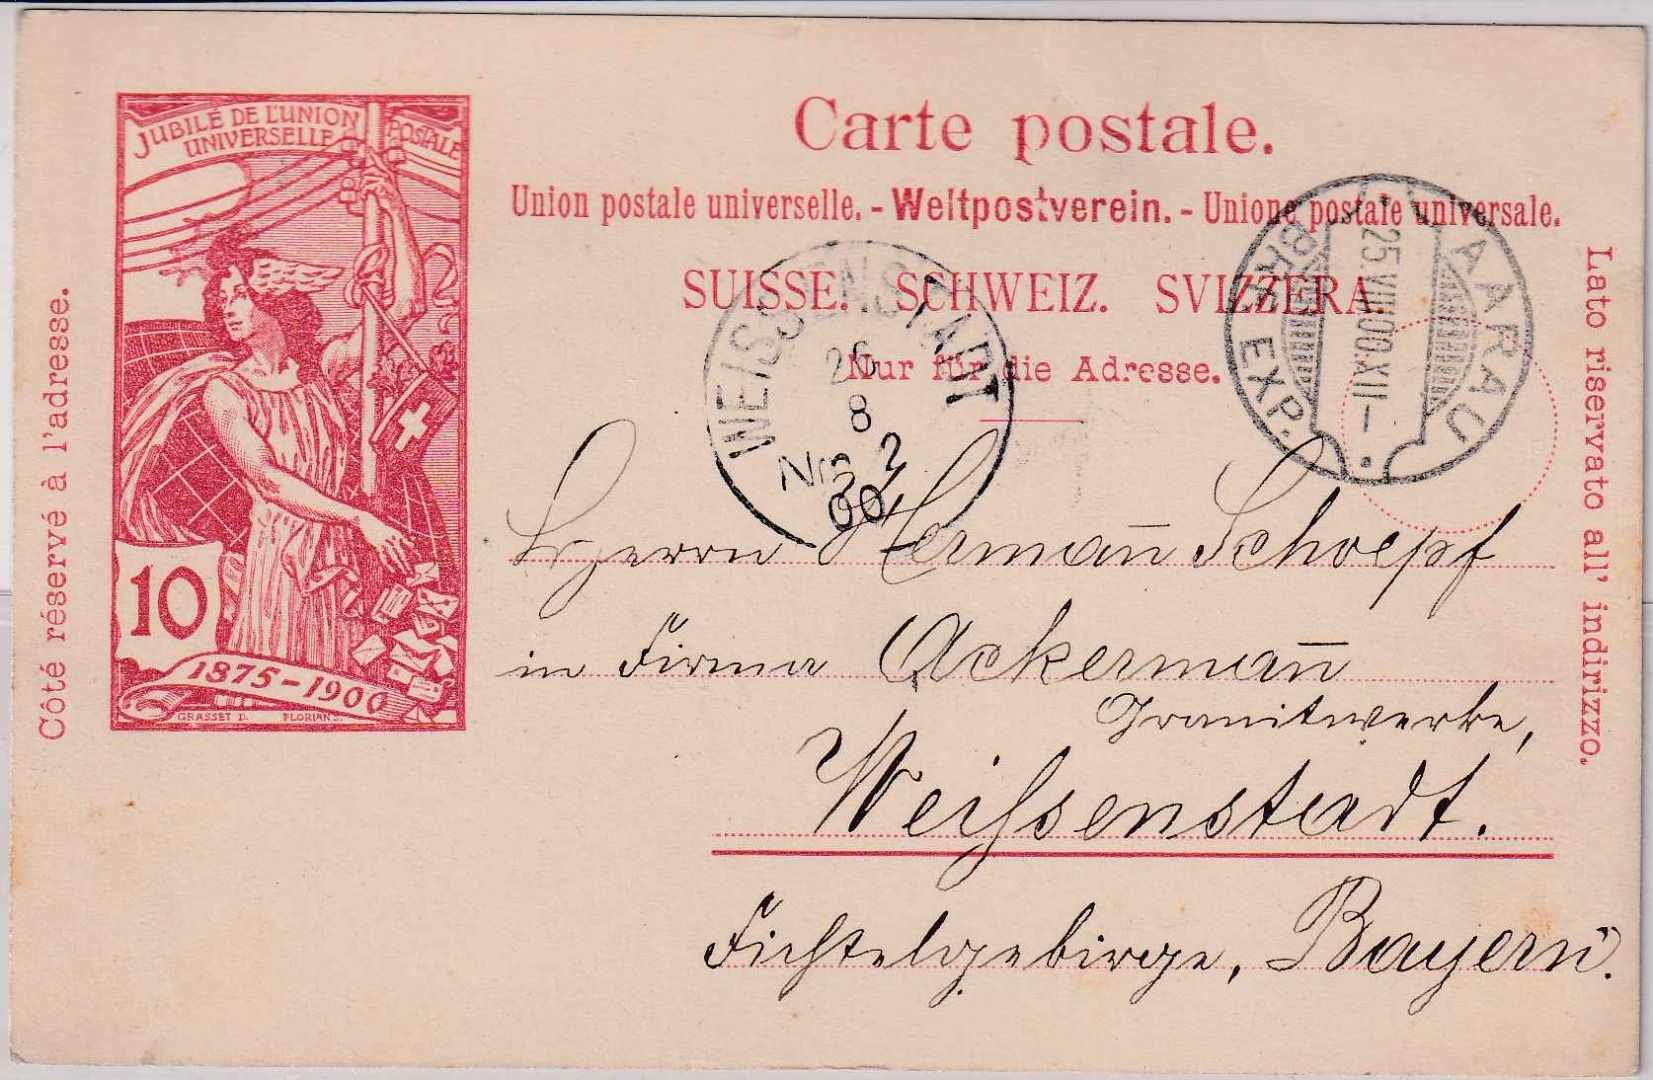 JUBILÉ DE L'UNION
UNIVERSELLE POSTALE
10
1875-1900
GRASSET D. FLORIAN S.
Côté réservé à l'adresse.
Carte postale.
Union postale universelle. - Weltpostverein. - Unione postale universale.
SUISSE. SCHWEIZ. SVIZZERA.
Nur für die Adresse.
WEISSENSTADT
26
8
Nm 2
00
AARAU
25.VIII.00.XII-
BRF. EXP.
Herrn Herman̅ Schoepf
in Firma Ackerman̅
Granitwerke,
Weißenstadt.
Fichtelgebirge, Bayern.
Lato riservato all' indirizzo.